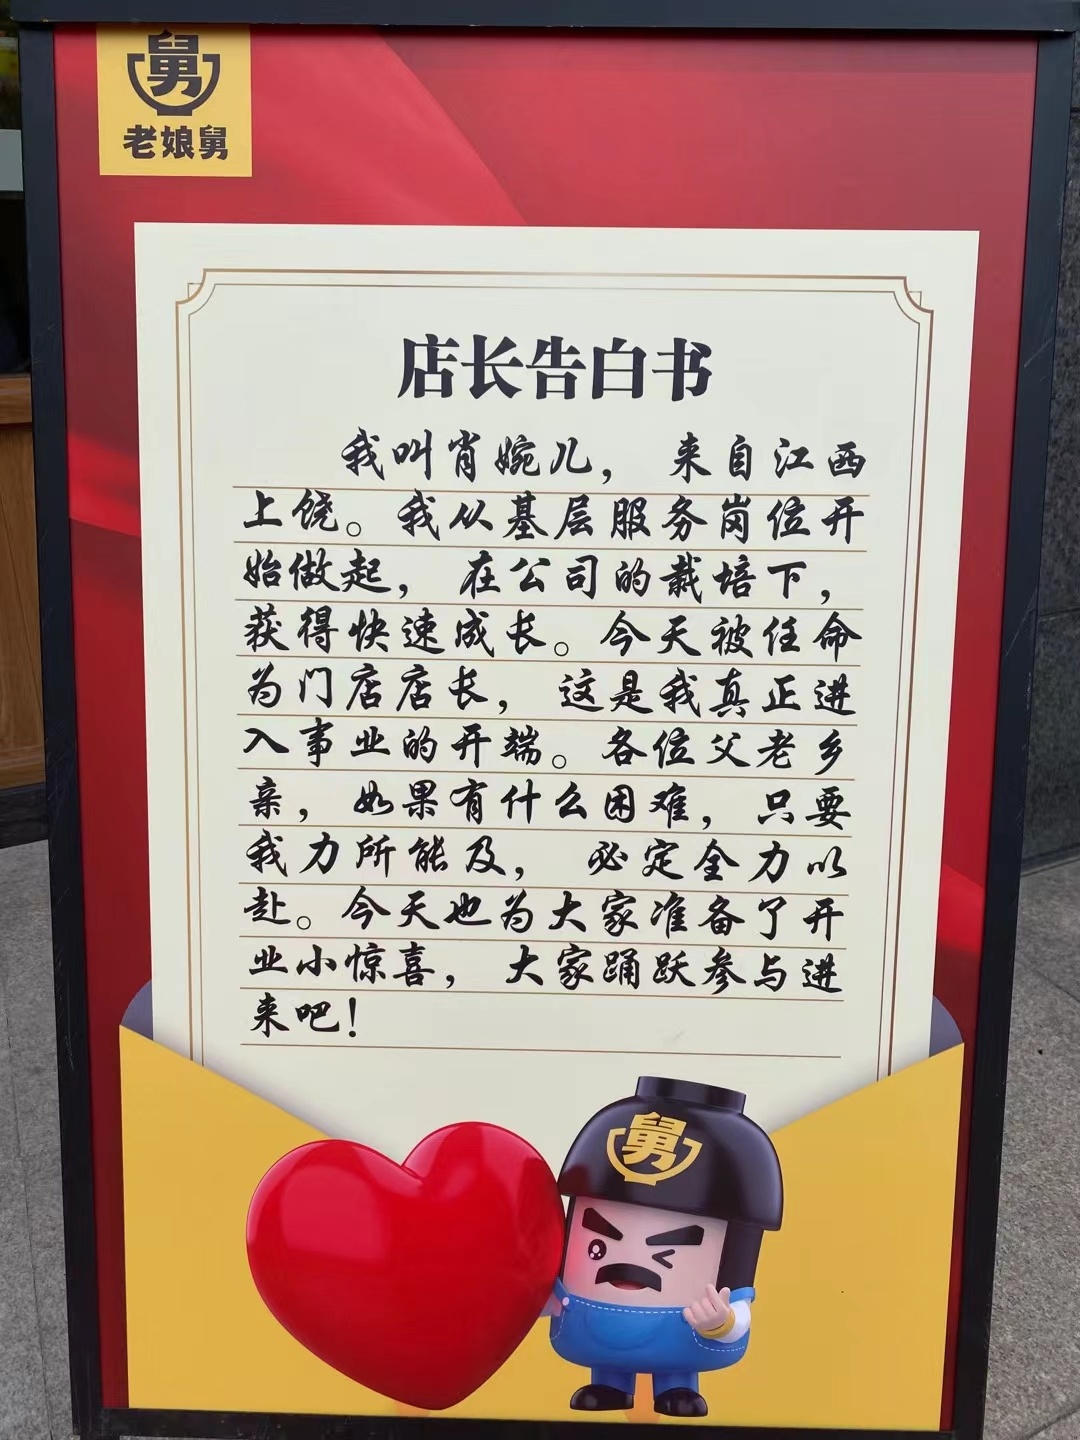 舅
老娘舅
店长告白书
我叫肖婉儿，来自江西
上饶。我从基层服务岗位开
始做起，在公司的栽培下，
获得快速成长。今天被任命
为门店店长，这是我真正进
入事业的开端。各位父老乡
亲，如果有什么困难，只要
我力所能及，必定全力以
赴。今天也为大家准备了开
业小惊喜，大家踊跃参与进
来吧！
舅